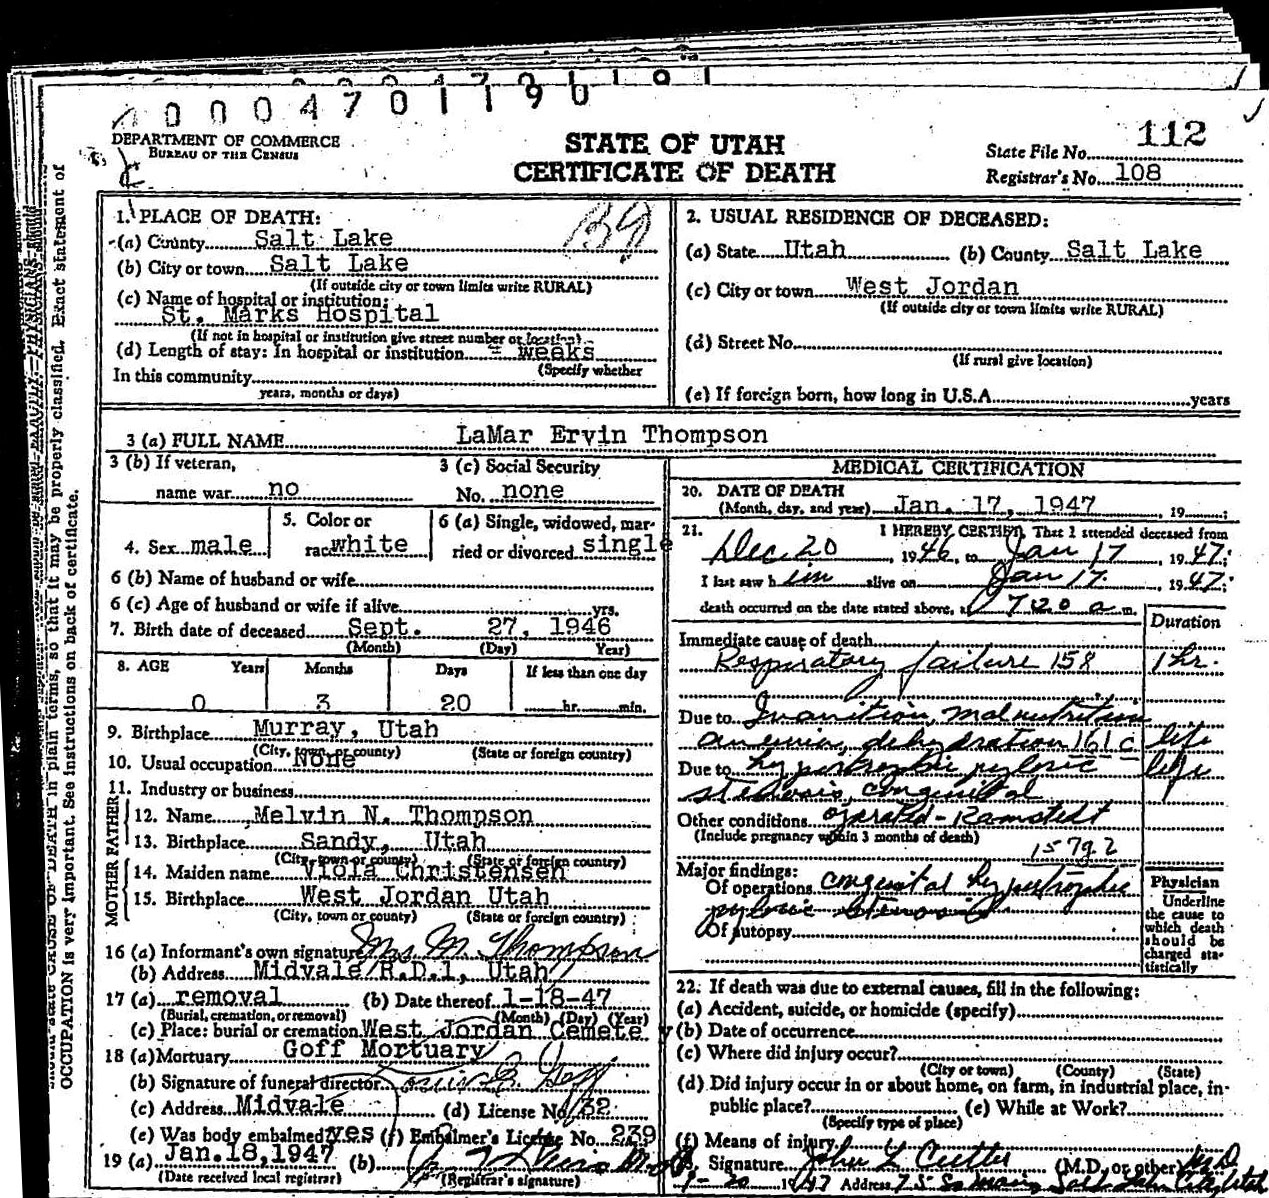 0 0 0 4 7 0 1 1 9 0
DEPARTMENT OF COMMERCE
BUREAU OF THE CENSUS
STATE OF UTAH
CERTIFICATE OF DEATH
State File No. 112
Registrar's No. 108
1. PLACE OF DEATH:
(a) County Salt Lake
(b) City or town Salt Lake
(If outside city or town limits write RURAL)
(c) Name of hospital or institution:
St. Marks Hospital
(If not in hospital or institution give street number or location)
(d) Length of stay: In hospital or institution weeks
(Specify whether
In this community
years, months or days)
2. USUAL RESIDENCE OF DECEASED:
(a) State Utah (b) County Salt Lake
(c) City or town West Jordan
(If outside city or town limits write RURAL)
(d) Street No.
(If rural give location)
(e) If foreign born, how long in U.S.A. years
3 (a) FULL NAME LaMar Ervin Thompson
3 (b) If veteran, name war no
3 (c) Social Security No. none
4. Sex male
5. Color or race white
6 (a) Single, widowed, married or divorced single
6 (b) Name of husband or wife
6 (c) Age of husband or wife if alive yrs.
7. Birth date of deceased Sept. 27, 1946
(Month) (Day) Year)
8. AGE Years Months Days If less than one day
0 3 20 hr. min.
9. Birthplace Murray, Utah
(City, town, or county) (State or foreign country)
10. Usual occupation None
11. Industry or business
FATHER
12. Name Melvin N. Thompson
13. Birthplace Sandy, Utah
(City, town or county) (State or foreign country)
MOTHER
14. Maiden name Viola Christensen
15. Birthplace West Jordan Utah
(City, town or county) (State or foreign country)
16 (a) Informant's own signature Mrs M. Thompson
(b) Address Midvale R.D.1, Utah
17 (a) removal (b) Date thereof 1-18-47
(Burial, cremation, or removal) (Month) (Day) (Year)
(c) Place: burial or cremation West Jordan Cemete y
18 (a) Mortuary Goff Mortuary
(b) Signature of funeral director Goff
(c) Address Midvale (d) License No. 132
(e) Was body embalmed? yes (f) Embalmer's License No. 239
19 (a) Jan.18,1947 (b)
(Date received local registrar) (Registrar's signature)
MEDICAL CERTIFICATION
20. DATE OF DEATH
(Month, day, and year) Jan. 17, 1947, 19 ;
21. I HEREBY CERTIFY, That I attended deceased from
Dec. 20, 1946, to Jan 17, 1947;
I last saw h im alive on Jan 17, 1947;
death occurred on the date stated above, at 7 20 a m.
Duration
Immediate cause of death
Respiratory failure 158 1 hr.
Due to Inanition, malnutrition
anemia, dehydration 161 c life
Due to hypertrophic pyloric life
stenosis, congenital
Other conditions operated - Ramstedt
(Include pregnancy within 3 months of death)
Major findings:
Of operations congenital hypertrophic
pyloric stenosis
Of autopsy
Physician
Underline the cause to which death should be charged statistically
22. If death was due to external causes, fill in the following:
(a) Accident, suicide, or homicide (specify)
(b) Date of occurrence
(c) Where did injury occur?
(City or town) (County) (State)
(d) Did injury occur in or about home, on farm, in industrial place, in-
public place? (e) While at Work?
(Specify type of place)
(f) Means of injury
Signature John L Cutler (M.D., or other) M.D.
Address
OCCUPATION is very important. See instructions on back of certificate.
should state CAUSE OF DEATH in plain terms, so that it may be properly classified. Exact statement of